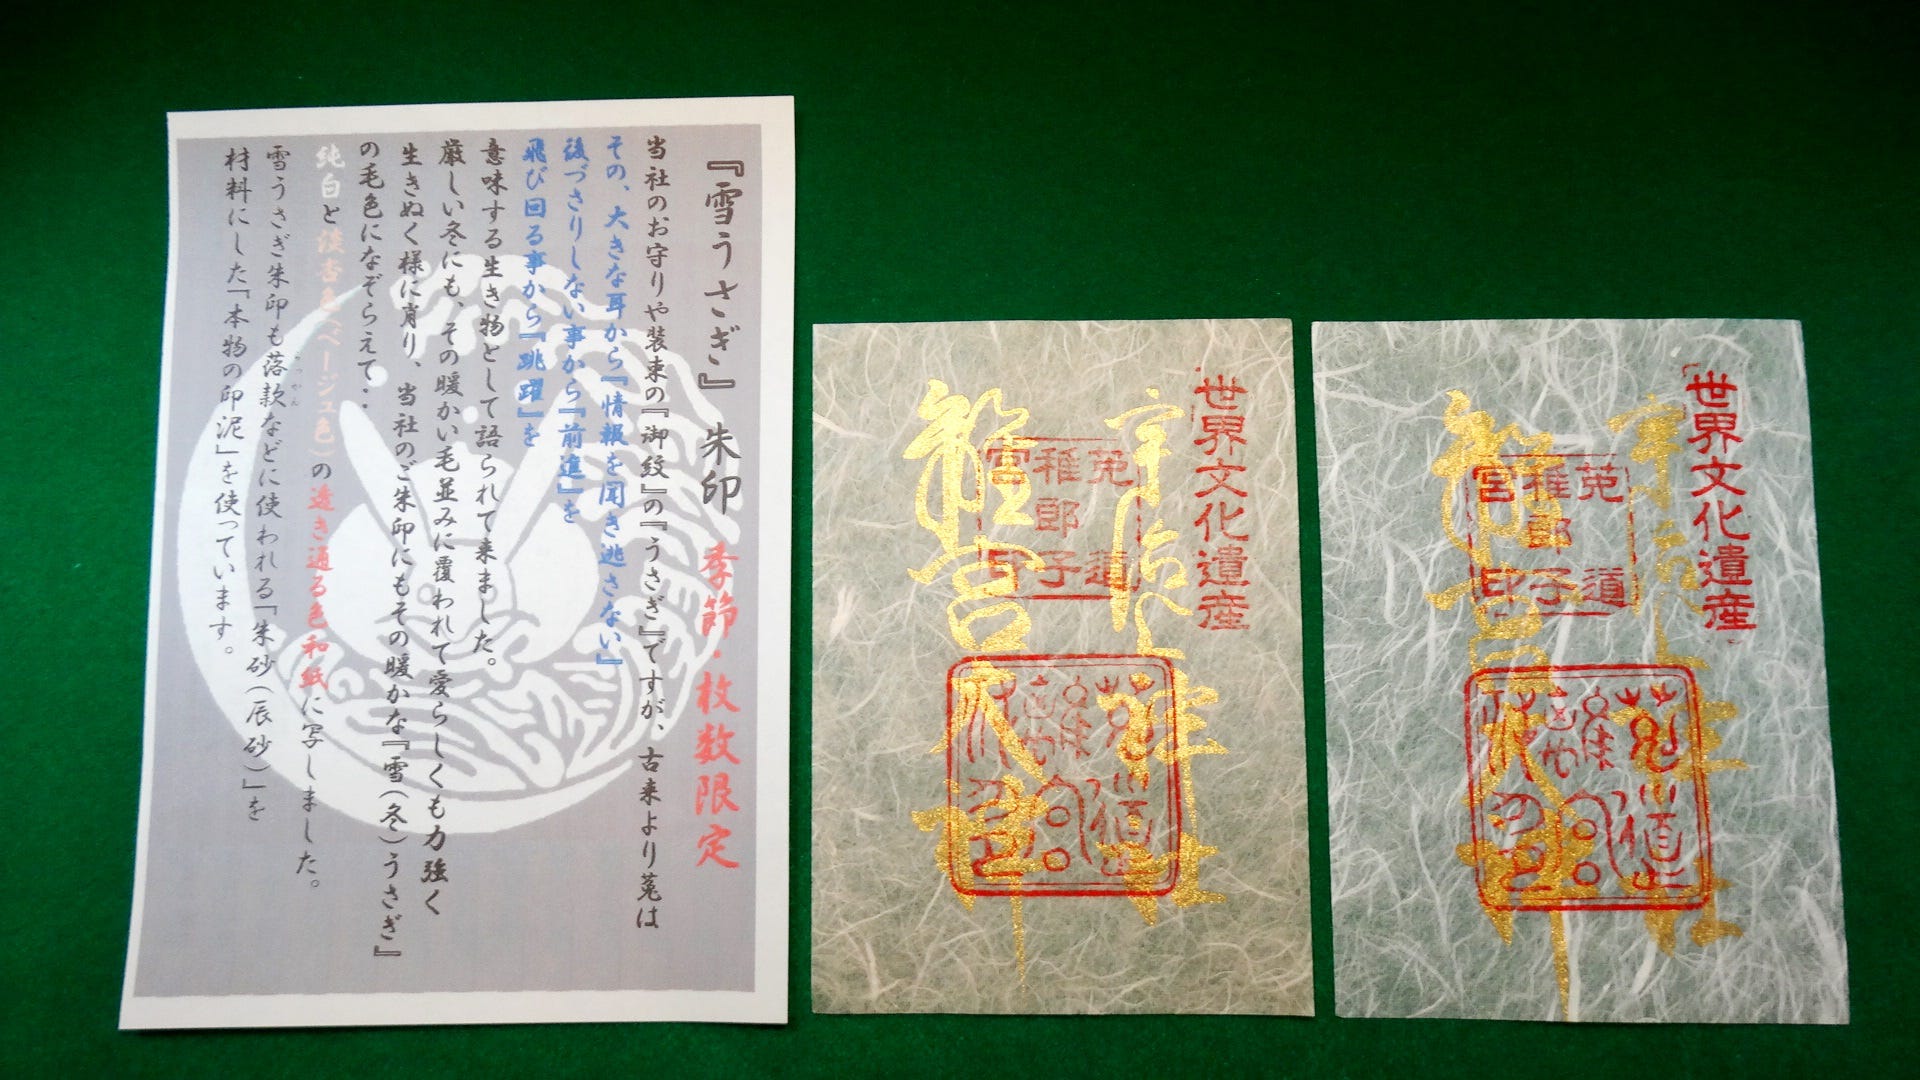 『雪うさぎ』朱印 季節・枚数限定
当社のお守りや装束の『御紋』の『うさぎ』ですが、古来より菟は
その、大きな耳から『情報を聞き逃さない』
後づさりしない事から『前進』を
飛び回る事から『跳躍』を
意味する生き物として語られて来ました。
厳しい冬にも、その暖かい毛並みに覆われて愛らしくも力強く
生きぬく様に肖り、当社のご朱印にもその暖かな『雪(冬)うさぎ』
の毛色になぞらえて・・
純白と淡杏色(ベージュ色)の透き通る色和紙に写しました。
雪うさぎ朱印も落款などに使われる「朱砂(辰砂)」を
らっかん
材料にした『本物の印泥」を使っています。
世界文化遺産
宇治上神社
菟道
稚郎子
宮印
龍吉大神
世界文化遺産
宇治上神社
菟道
稚郎子
宮印